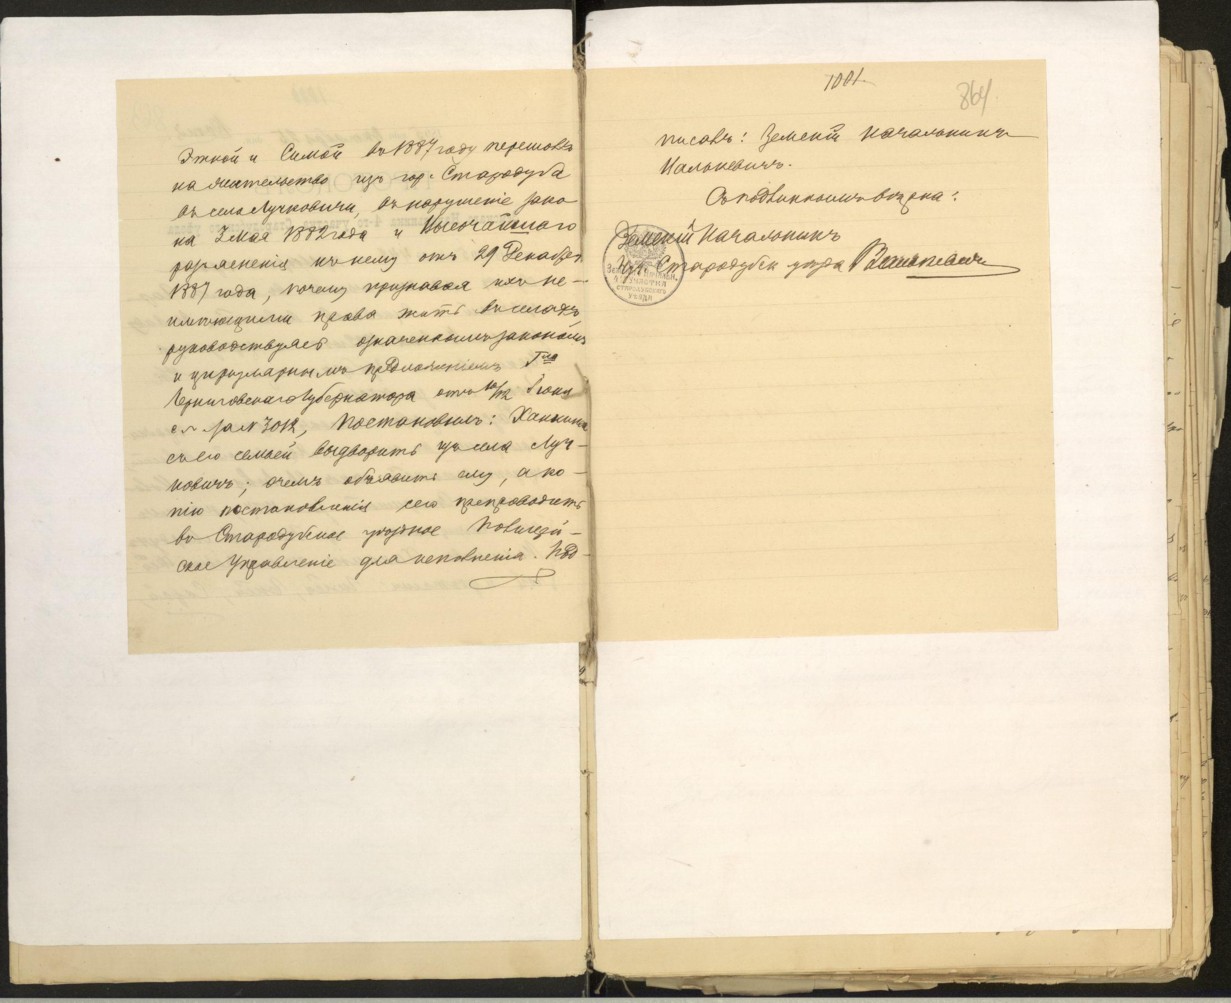 Эткой и Симой въ 1887 году перешовъ
на жительство изъ гор. Стародуба
въ село Лучковичи, въ нарушеніе зако-
на 3 Мая 1882 года и Высочайшаго
разъясненія къ нему отъ 29 Декабря
1887 года, почему признавая ихъ не-
имѣющими права жить въ селахъ
руководствуясь означеннымъ закономъ
и циркулярнымъ предложеніемъ Гна
Черниговскаго Губернатора отъ 10/12 Іюня
с.г. за № 3012, Постановилъ: Ханкина
съ его семьей выдворить изъ села Луч-
ковичъ; о чемъ объявить ему, а ко-
пію постановленія сего препроводить
въ Стародубское уѣздное Полицей-
ское Управленіе для исполненія. Под-
1001
364
писавъ: Земскій Начальникъ
Вѣрна:
Съ подлиннымъ вѣрна:
Земскій Начальникъ
Стародубск уѣзда
Земск. Начальн.
4 участка
Стародубскаго
уѣзда